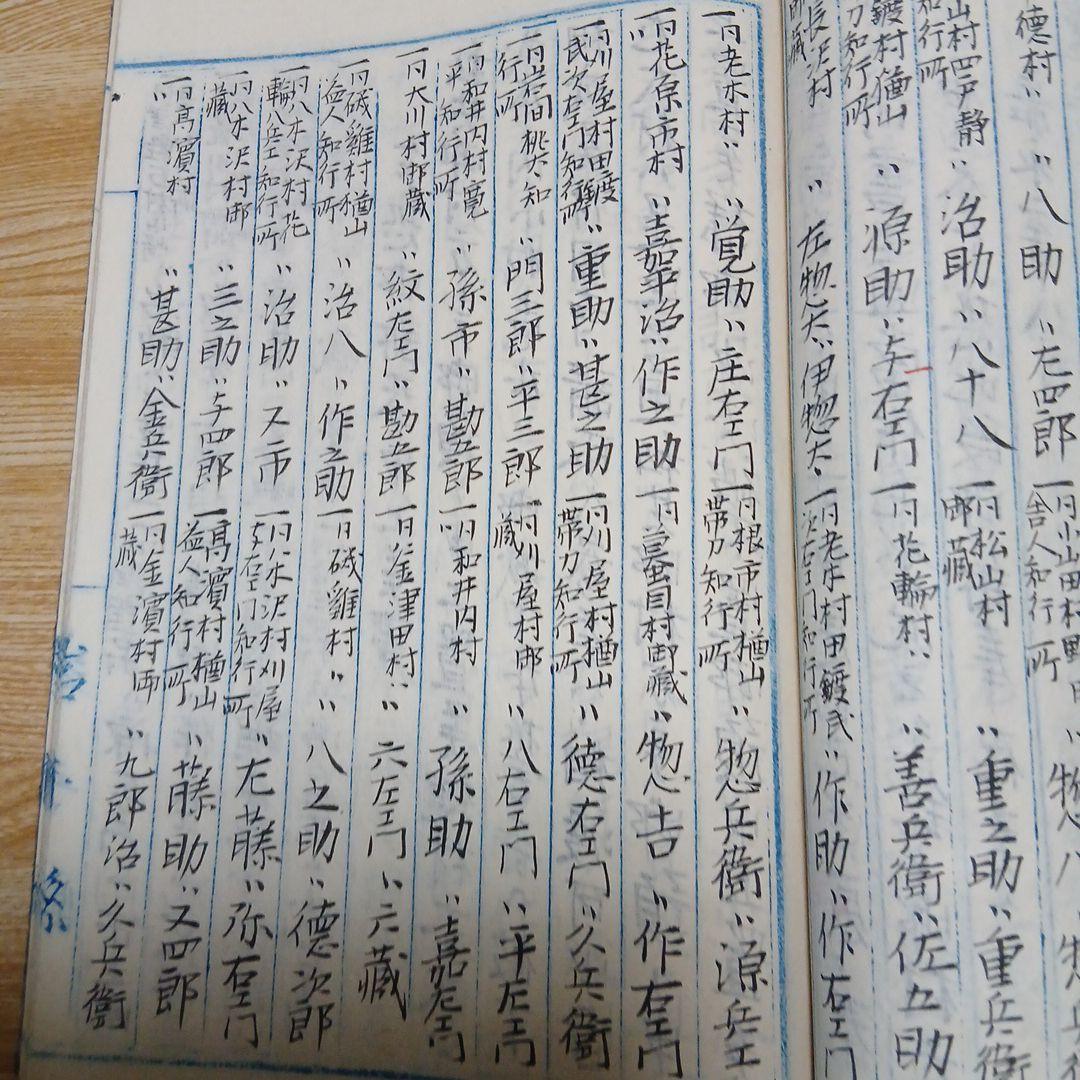 徳村〃 〃八助 〃左四郎 一〃小山田村野田舎人知行所 〃惣八
山村四戸静知行所 〃治助〃八十八 一〃松山村御蔵 〃重之助〃重兵衛
鍍村楢山刀知行所 〃源助〃与右エ門 一〃花輪村〃 〃善兵衛〃佐五助
長沢村御蔵 〃左惣太〃伊惣太 一〃老木村田鍍民次左エ門知行所 〃作助〃作右エ門
一〃老木村〃 〃覚助〃庄右エ門 一〃根市村楢山帯刀知行所 〃惣兵衛〃源兵エ
一〃花原市村〃 〃嘉平治〃作之助 一〃蟇目村御蔵 〃惣吉〃作右エ門
一〃刈屋村田鍍民次左エ門知行所 〃重助〃甚之助 一〃刈屋村楢山帯刀知行所 〃徳右エ門〃久兵衛
一〃岩間桃太知行所 〃門三郎〃平三郎 一〃刈屋村御蔵 〃八右エ門〃平左エ門
一〃和井内村寛平知行所 〃孫市〃勘五郎 一〃和井内村〃 〃孫助〃嘉左エ門
一〃大川村御蔵 〃紋左エ門〃勘五郎 一〃釜津田村〃 〃六左エ門〃六蔵
一〃磯雞村楢山益人知行所 〃治八〃作之助 一〃磯雞村〃 〃八之助〃徳次郎
一〃八木沢村花輪八兵エ知行所 〃治助〃又市 一〃八木沢村刈屋左エ門知行所 〃左藤〃弥右エ門
一〃八木沢村御蔵 〃三之助〃与四郎 一〃高濱村楢山益人知行所 〃藤助〃又四郎
一〃高濱村〃 〃甚助〃金兵衛 一〃金濱村御蔵 〃九郎治〃久兵衛